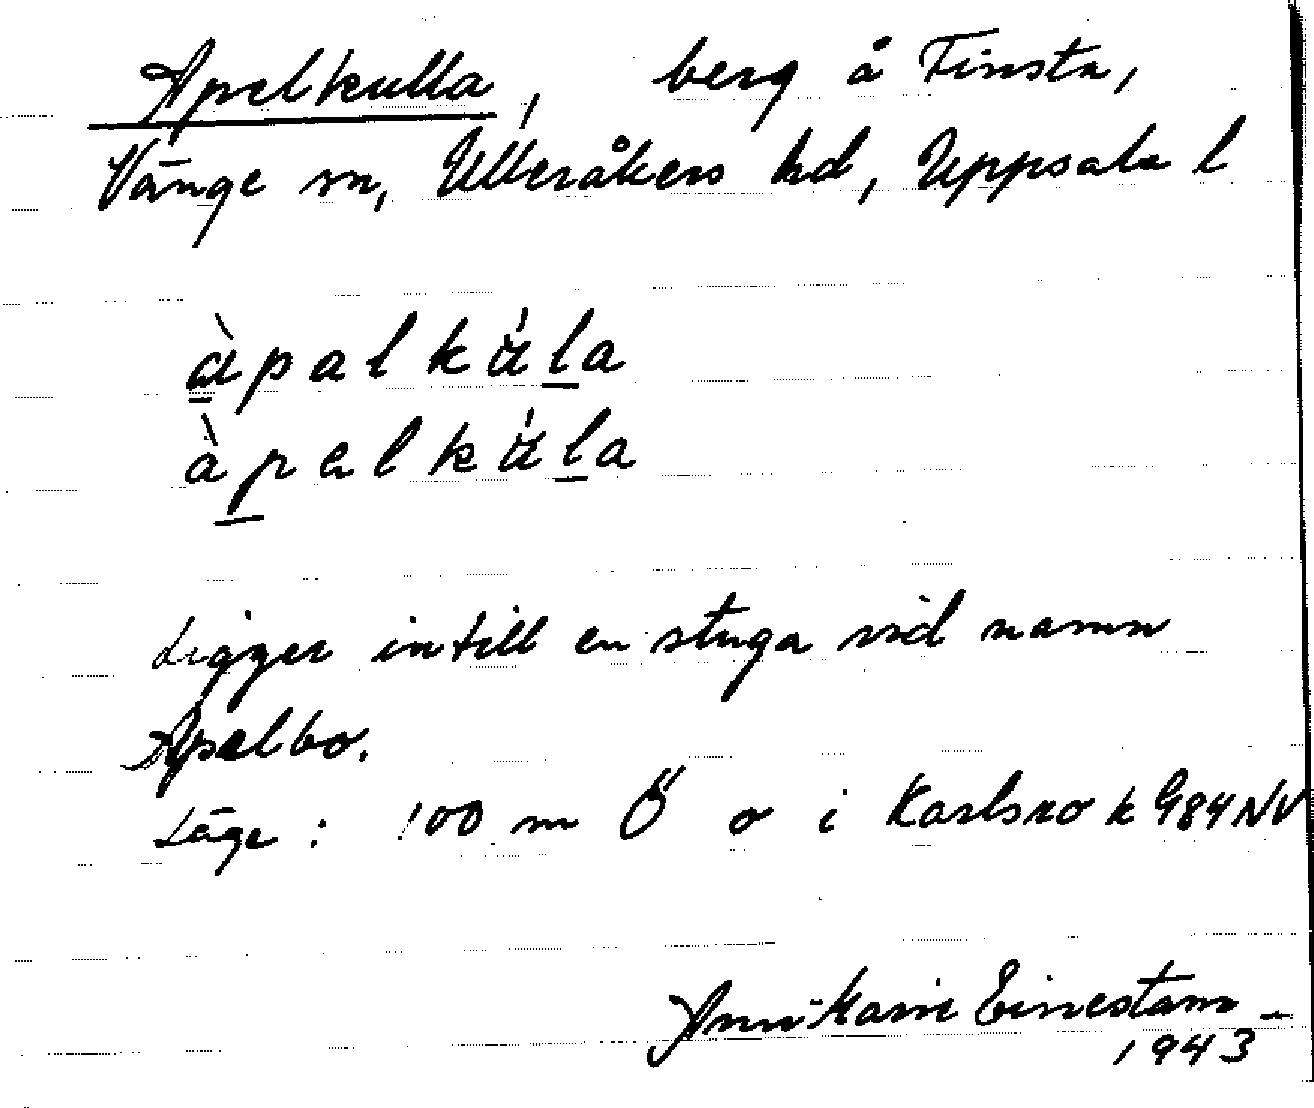 Apelkulla, berg å Finsta,
Vänge sn, Ulleråkers hd, Uppsala l
àpalkúla
àpelkúla
Ligger intill en stuga vid namn
Apelbo.
Läge: 100 m Ö o i Karlsro k G84NV
Einestam
1943